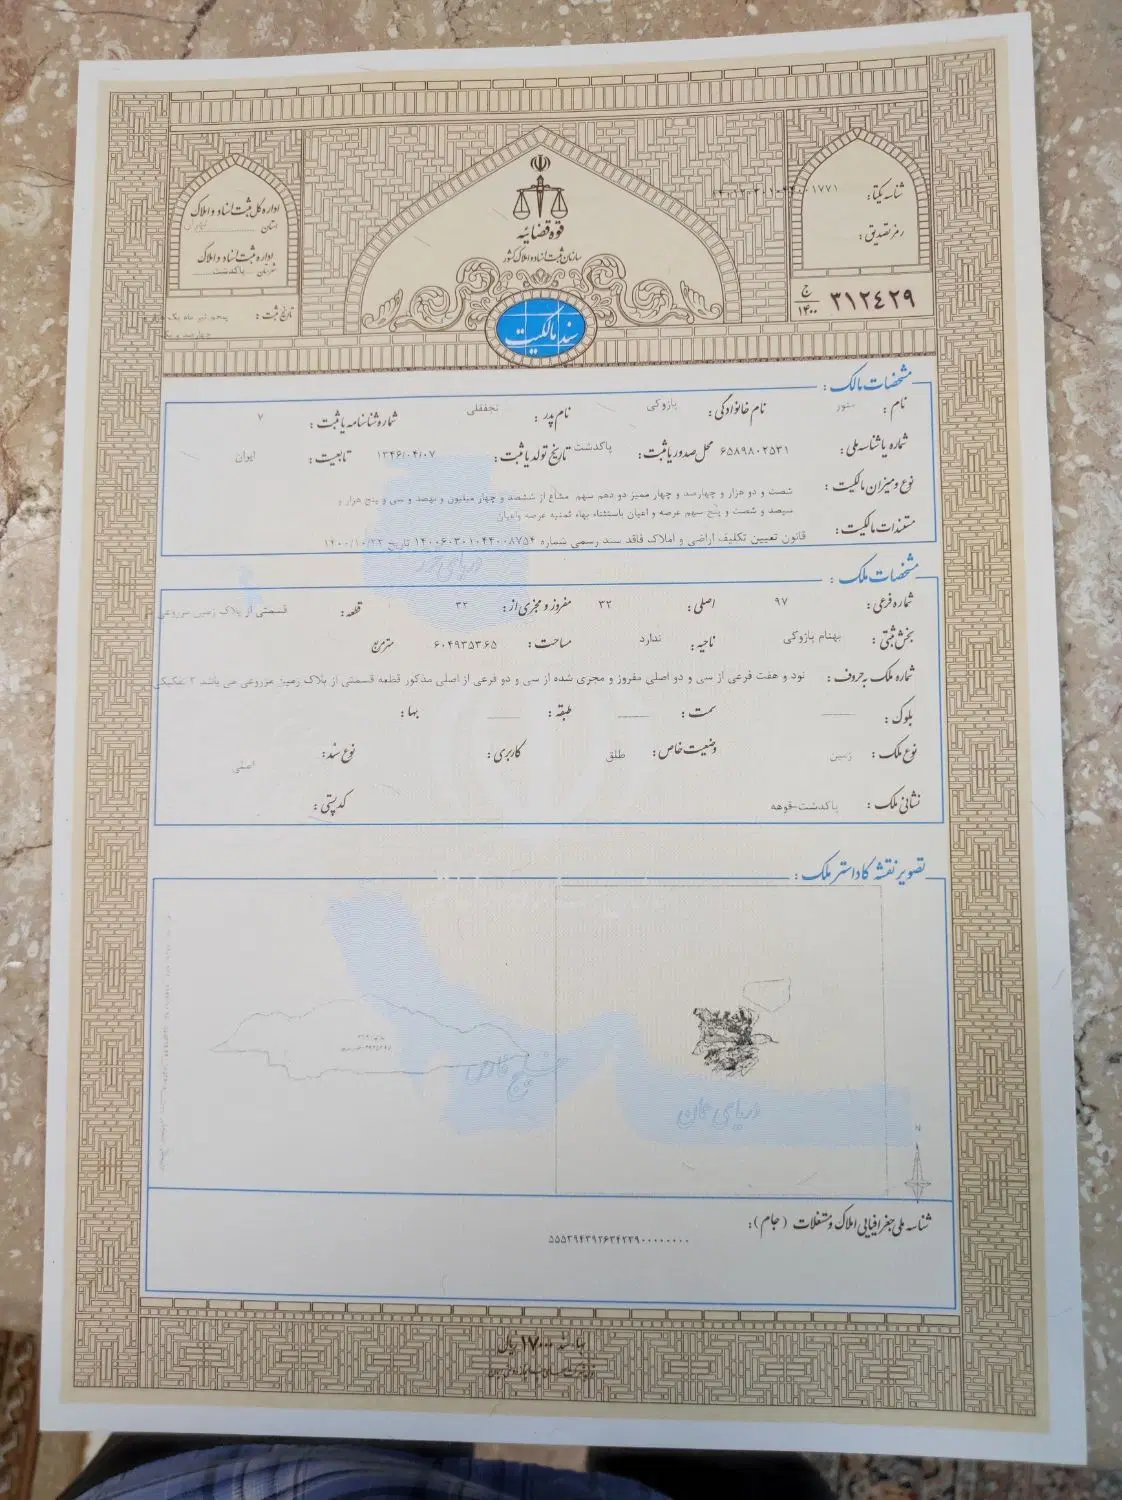 قوه قضائیه
سازمان ثبت اسناد و املاک کشور
سند مالکیت
شناسه یکتا:
رمز تصدیق:
۳۱۲٤۲۹ ج ۱۴۰۰
اداره کل ثبت اسناد و املاک
استان
اداره ثبت اسناد و املاک
شهرستان پاکدشت
تاریخ ثبت: پنجم تیر ماه یک هزار و
چهارصد و یک
مشخصات مالک:
نام: نام خانوادگی: پازوکی نام پدر: نجفقلی شماره شناسنامه یا ثبت: ۷
شماره یا شناسه ملی: ۶۵۸۹۸۰۲۵۳۱ محل صدور یا ثبت: پاکدشت تاریخ تولد یا ثبت: ۱۳۴۶/۰۴/۰۷ تابعیت: ایران
نوع و میزان مالکیت: شصت و دو هزار و چهارصد و چهار ممیز دو دهم سهم مشاع از ششصد و چهار میلیون و نهصد و سی و پنج هزار و
سیصد و شصت و پنج سهم عرصه و اعیان باستثناء بهاء ثمنیه عرصه واعیان
مستندات مالکیت: قانون تعیین تکلیف اراضی و املاک فاقد سند رسمی شماره ۱۴۰۰۶۰۳۰۱۰۴۴۰۰۸۷۵۴ تاریخ ۱۴۰۰/۱۰/۲۲
دریای خزر
مشخصات ملک:
شماره فرعی: ۹۷ اصلی: ۳۲ مفروز و مجزی از: ۳۲ قطعه: قسمتی از پلاک زمین مزروعی
بخش ثبتی: بهنام پازوکی ناحیه: ندارد مساحت: ۶۰۴۹۳۵۳.۶۵ متر مربع
شماره ملک به حروف: نود و هفت فرعی از سی و دو اصلی مفروز و مجزی شده از سی و دو فرعی از اصلی مذکور قطعه قسمتی از پلاک زمین مزروعی می باشد ۲ تفکیکی
بلوک: سمت: طبقه: بها:
نوع ملک: زمین وضعیت خاص: طلق کاربری: نوع سند: اصلی
نشانی ملک: پاکدشت-قوهه کد پستی:
تصویر نقشه کاداستر ملک:
خلیج فارس
دریای عمان
N
شناسه ملی جغرافیایی املاک و مستغلات (جام):
۵۵۵۳۹۴۳۹۲۶۳۴۲۳۹۰۰۰۰۰۰۰۰
بهاء سند ۱۷۰۰۰ ریال